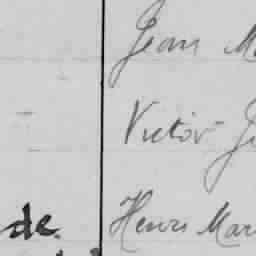 Jean M
Victor J
de. Henri Mari